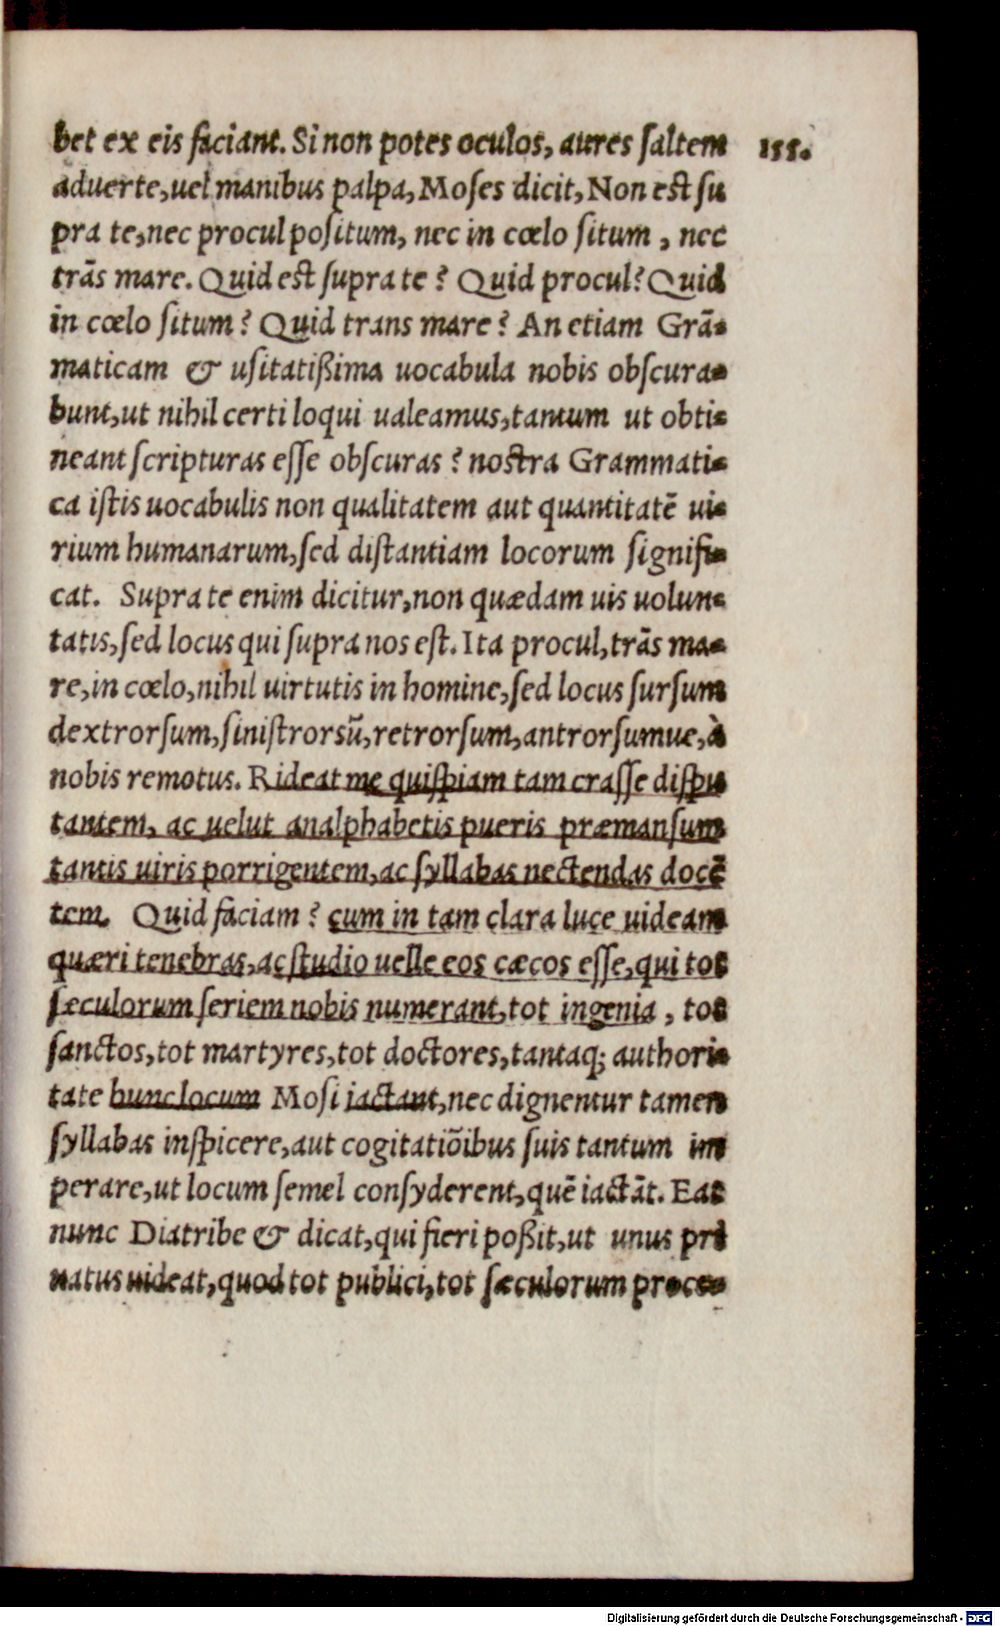 bet ex eis faciant. Si non potes oculos, aures ſaltem 155.
aduerte, uel manibus palpa, Moſes dicit, Non eſt ſu
pra te, nec procul poſitum, nec in cœlo ſitum , nec
trãs mare. Quid eſt ſupra te ? Quid procul? Quid
in cœlo ſitum ? Quid trans mare ? An etiam Grã-
maticam & uſitatißima uocabula nobis obſcura-
bunt, ut nihil certi loqui ualeamus, tantum ut obti-
neant ſcripturas eſſe obſcuras ? noſtra Grammati-
ca iſtis uocabulis non qualitatem aut quantitatẽ ui-
rium humanarum, ſed diſtantiam locorum ſignifi-
cat. Supra te enim dicitur, non quædam uis uolun-
tatis, ſed locus qui ſupra nos eſt. Ita procul, trãs ma-
re, in cœlo, nihil uirtutis in homine, ſed locus ſurſum
dextrorſum, ſiniſtrorsũ, retrorſum, antrorſumue, à
nobis remotus. Rideat me quiſpiam tam craſſe diſpu
tantem, ac uelut analphabetis pueris præmanſum
tantis uiris porrigentem, ac ſyllabas nectendas docẽ
tem. Quid faciam ? cum in tam clara luce uideam
quæri tenebras, ac ſtudio uelle eos cæcos eſſe, qui tot
ſæculorum ſeriem nobis numerant, tot ingenia , tot
ſanctos, tot martyres, tot doctores, tantaq; authori-
tate hunc locum Moſi iactant, nec dignentur tamen
ſyllabas inſpicere, aut cogitatiõibus ſuis tantum im
perare, ut locum ſemel conſyderent, quẽ iactãt. Eat
nunc Diatribe & dicat, qui fieri poßit, ut unus pri
uatus uideat, quod tot publici, tot ſæculorum proce-
Digitalisierung gefördert durch die Deutsche Forschungsgemeinschaft - DFG